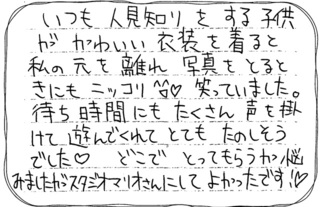 いつも人見知りをする子供
がかわいい衣装を着ると
私の元を離れ写真をとると
きにもニッコリ^^♡笑っていました。
待ち時間にもたくさん声を掛
けて遊んでくれてとてもたのしそう
でした♡ どこでとってもらうか悩
みましたがスタジオマリオさんにしてよかったです!♡